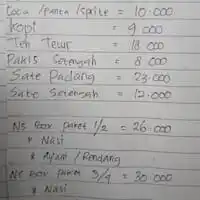 Coca /panta /sprite = 10.000
kopi = 9 000
Teh Telur = 18 000
Pakis Setengah = 8 000
Sate Padang = 23.000
Sate Setengah = 12.000
NS Box paket 1/2 = 26.000
* Nasi
* Ayam / Rendang
NS Box paket 3/4 = 30.000
* Nasi